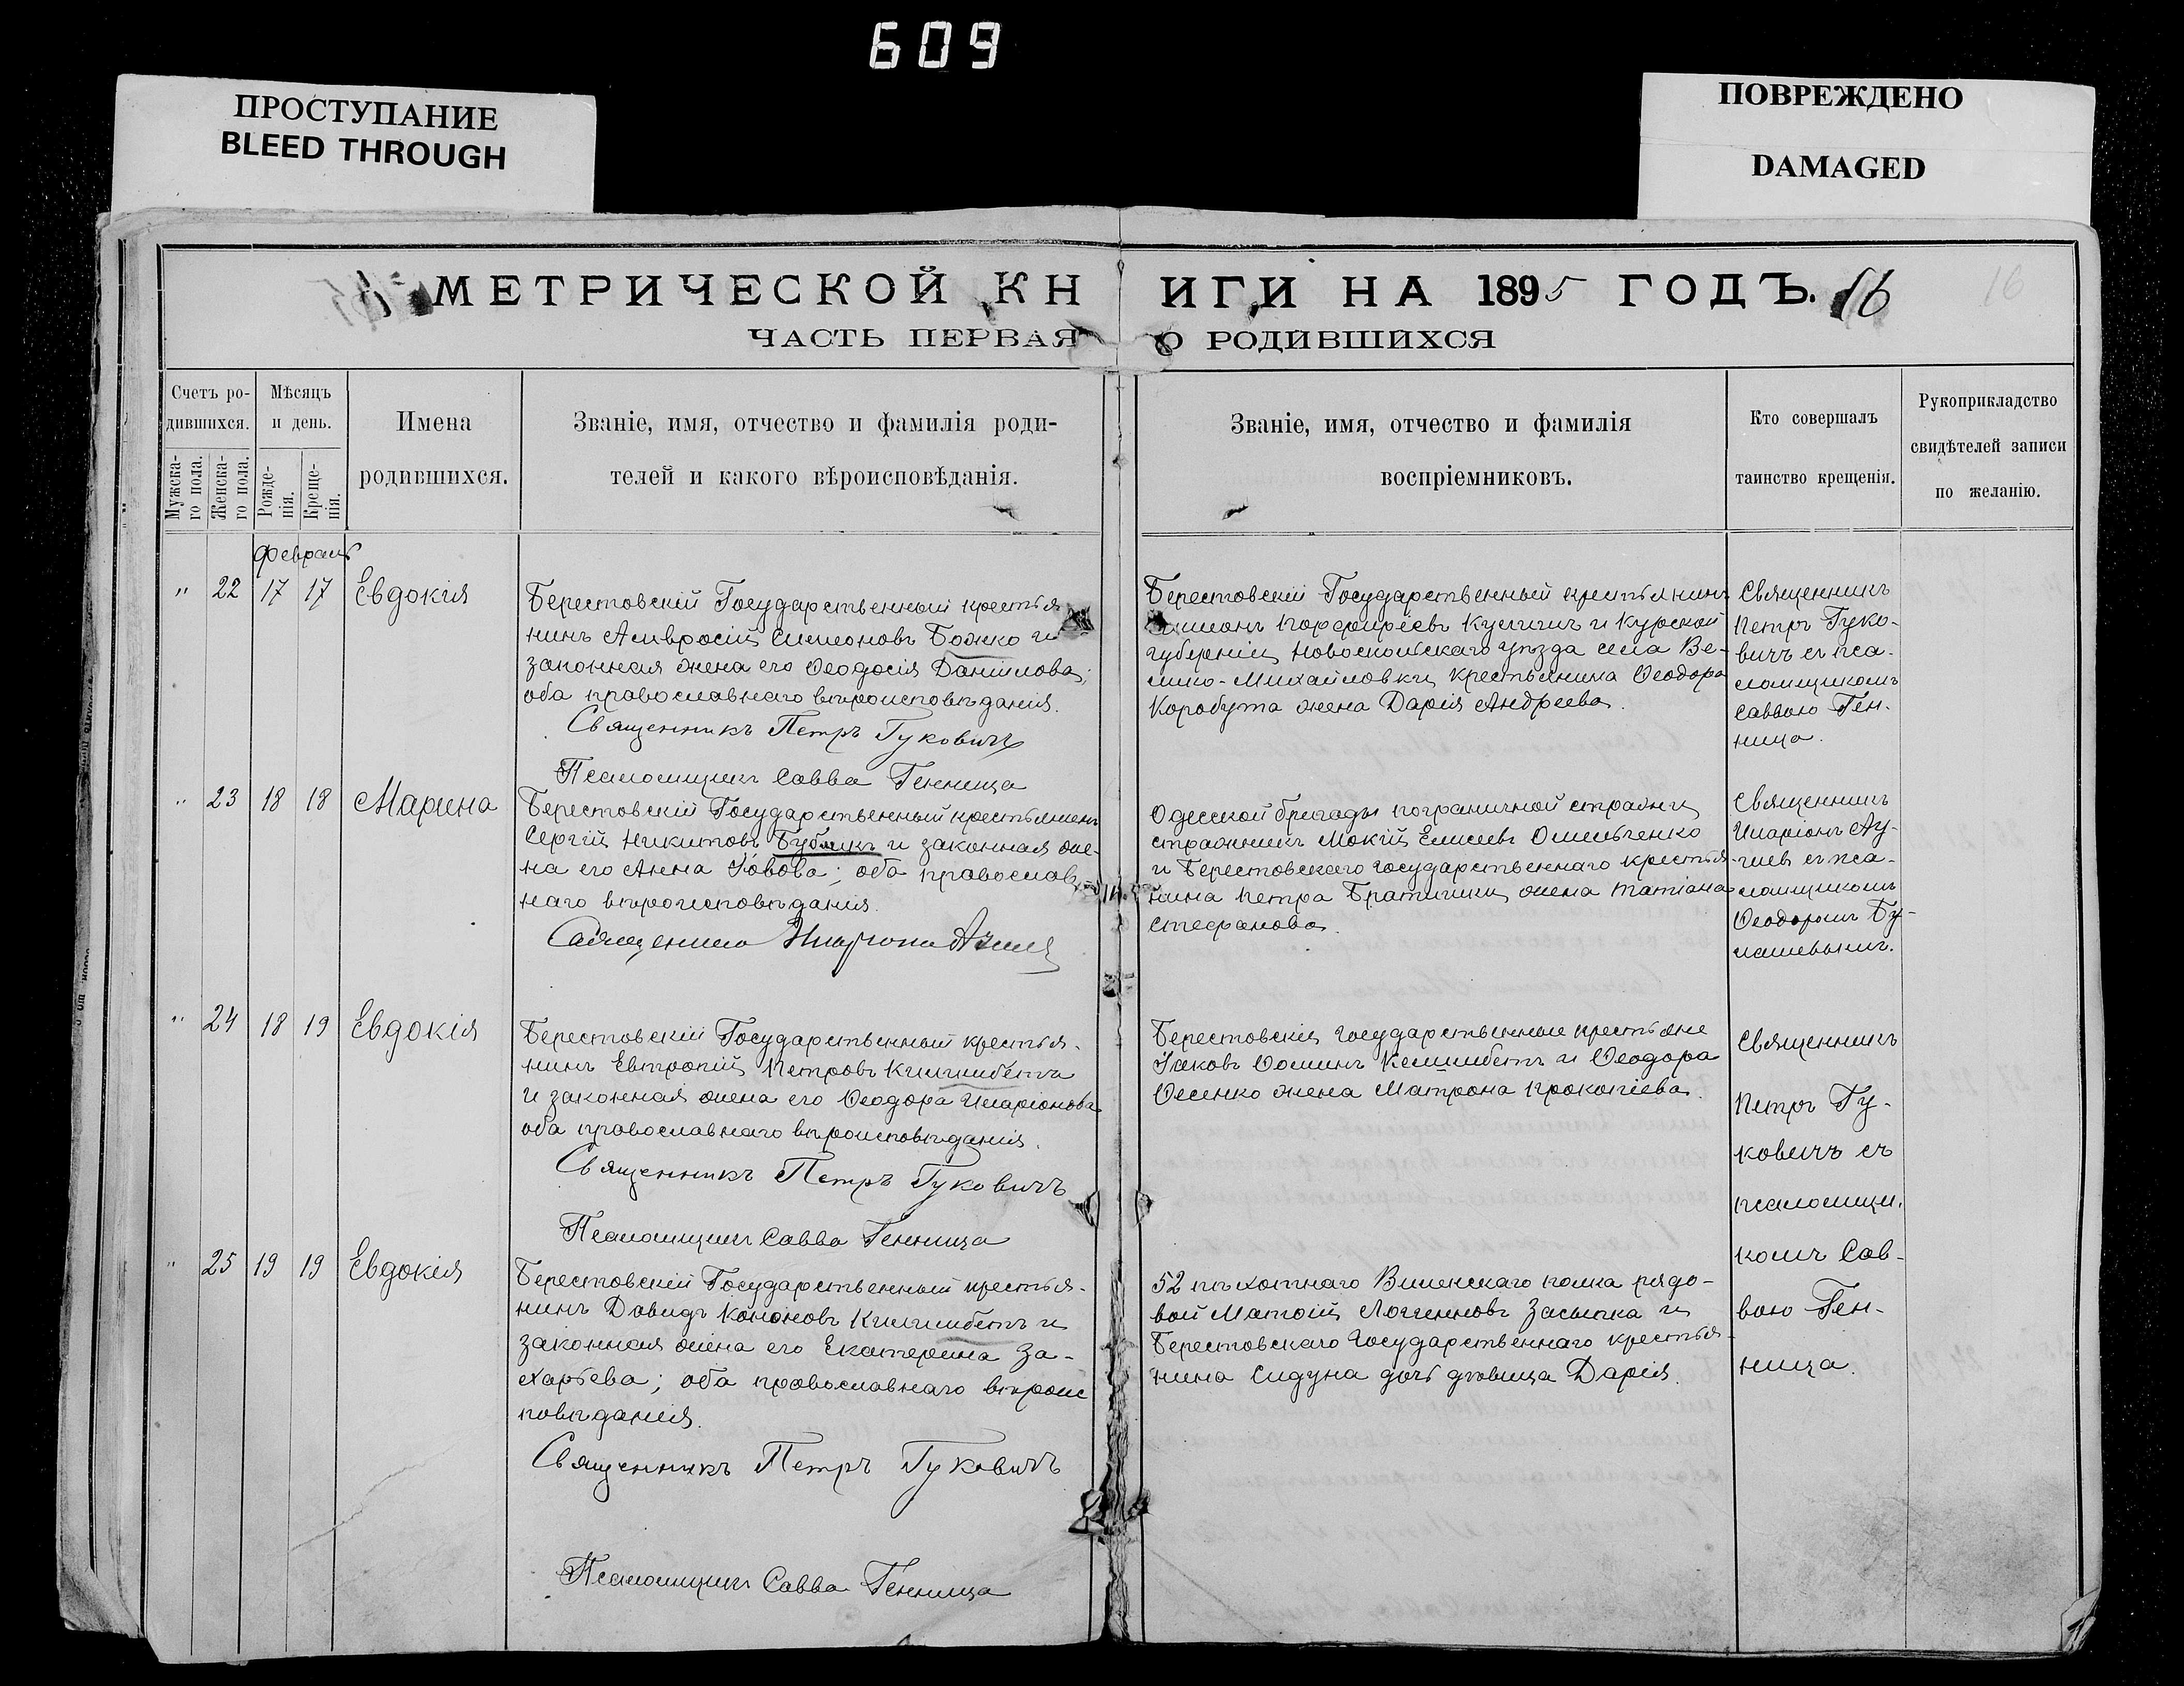 609
ПРОСТУПАНИЕ
BLEED THROUGH
ПОВРЕЖДЕНО
DAMAGED
МЕТРИЧЕСКОЙ КН
ИГИ НА 1895 ГОДЪ. 16
16
ЧАСТЬ ПЕРВАЯ
О РОДИВШИХСЯ
Счетъ ро-
дившихся.
Мужска-
го пола.
Женска-
го пола.
Мѣсяцъ
и день.
Рожде-
нія.
Креще-
нія.
Имена
родившихся.
Званіе, имя, отчество и фамилія роди-
телей и какого вѣроисповѣданія.
Званіе, имя, отчество и фамилія
воспріемниковъ.
Кто совершалъ
таинство крещенія.
Рукоприкладство
свидѣтелей записи
по желанію.
Февраль
" 22 17 17 Евдокія
Берестовскій Государственный крестья
нинъ Амвросій Симеоновъ Божко и
законная жена его Ѳеодосія Даниилова;
оба православнаго вѣроисповѣданія.
Священникъ Петръ Гуковичъ
Псаломщикъ Савва Генница
Берестовскій Государственный крестьянинъ
Порфиріевъ и Курской
губерніи Новооскольскаго уѣзда села Ве-
лико-Михайловки крестьянина Ѳеодора
Коробута жена Дарія Андреева.
Священникъ
Петръ Гуко-
вичъ съ пса-
ломщикомъ
Саввою Ген-
ница.
" 23 18 18 Марина
Берестовскій Государственный крестьянинъ
Сергій Никитовъ Бубликъ и законная же-
на его Анна Іовова; оба православ
наго вѣроисповѣданія.
Священникъ Иларіонъ
Одесской бригады пограничной стражи
стражникъ Мокій Елисеевъ Омельченко
и Берестовскаго Государственнаго крестья-
нина Петра жена Татіана
Стефанова.
Священникъ
Иларіонъ
съ пса-
ломщикомъ
Ѳеодоромъ
" 24 18 19 Евдокія
Берестовскій Государственный крестья-
нинъ Евтропій Петровъ Кишшибетъ
и законная жена его Ѳеодора Иларіонова
оба православнаго вѣроисповѣданія.
Священникъ Петръ Гуковичъ
Псаломщикъ Савва Генница
Берестовскіе Государственные крестьяне
Іаковъ Ѳоминъ и Ѳеодора
жена Матрона Прокопіева.
Священникъ
Петръ Гу-
ковичъ съ
псаломщи-
комъ Сав-
вою Ген-
ница.
" 25 19 19 Евдокія
Берестовскій Государственный крестья-
нинъ Давидъ Кононовъ Кишшибетъ и
законная жена его Екатерина За-
харьева; оба православнаго вѣроис
повѣданія.
Священникъ Петръ Гуковичъ
Псаломщикъ Савва Генница
52 пѣхотнаго Виленскаго полка рядо-
вой Матѳій Логгиновъ Засыпка и
Берестовскаго Государственнаго крестья-
нина Сидуна дочь дѣвица Дарія.